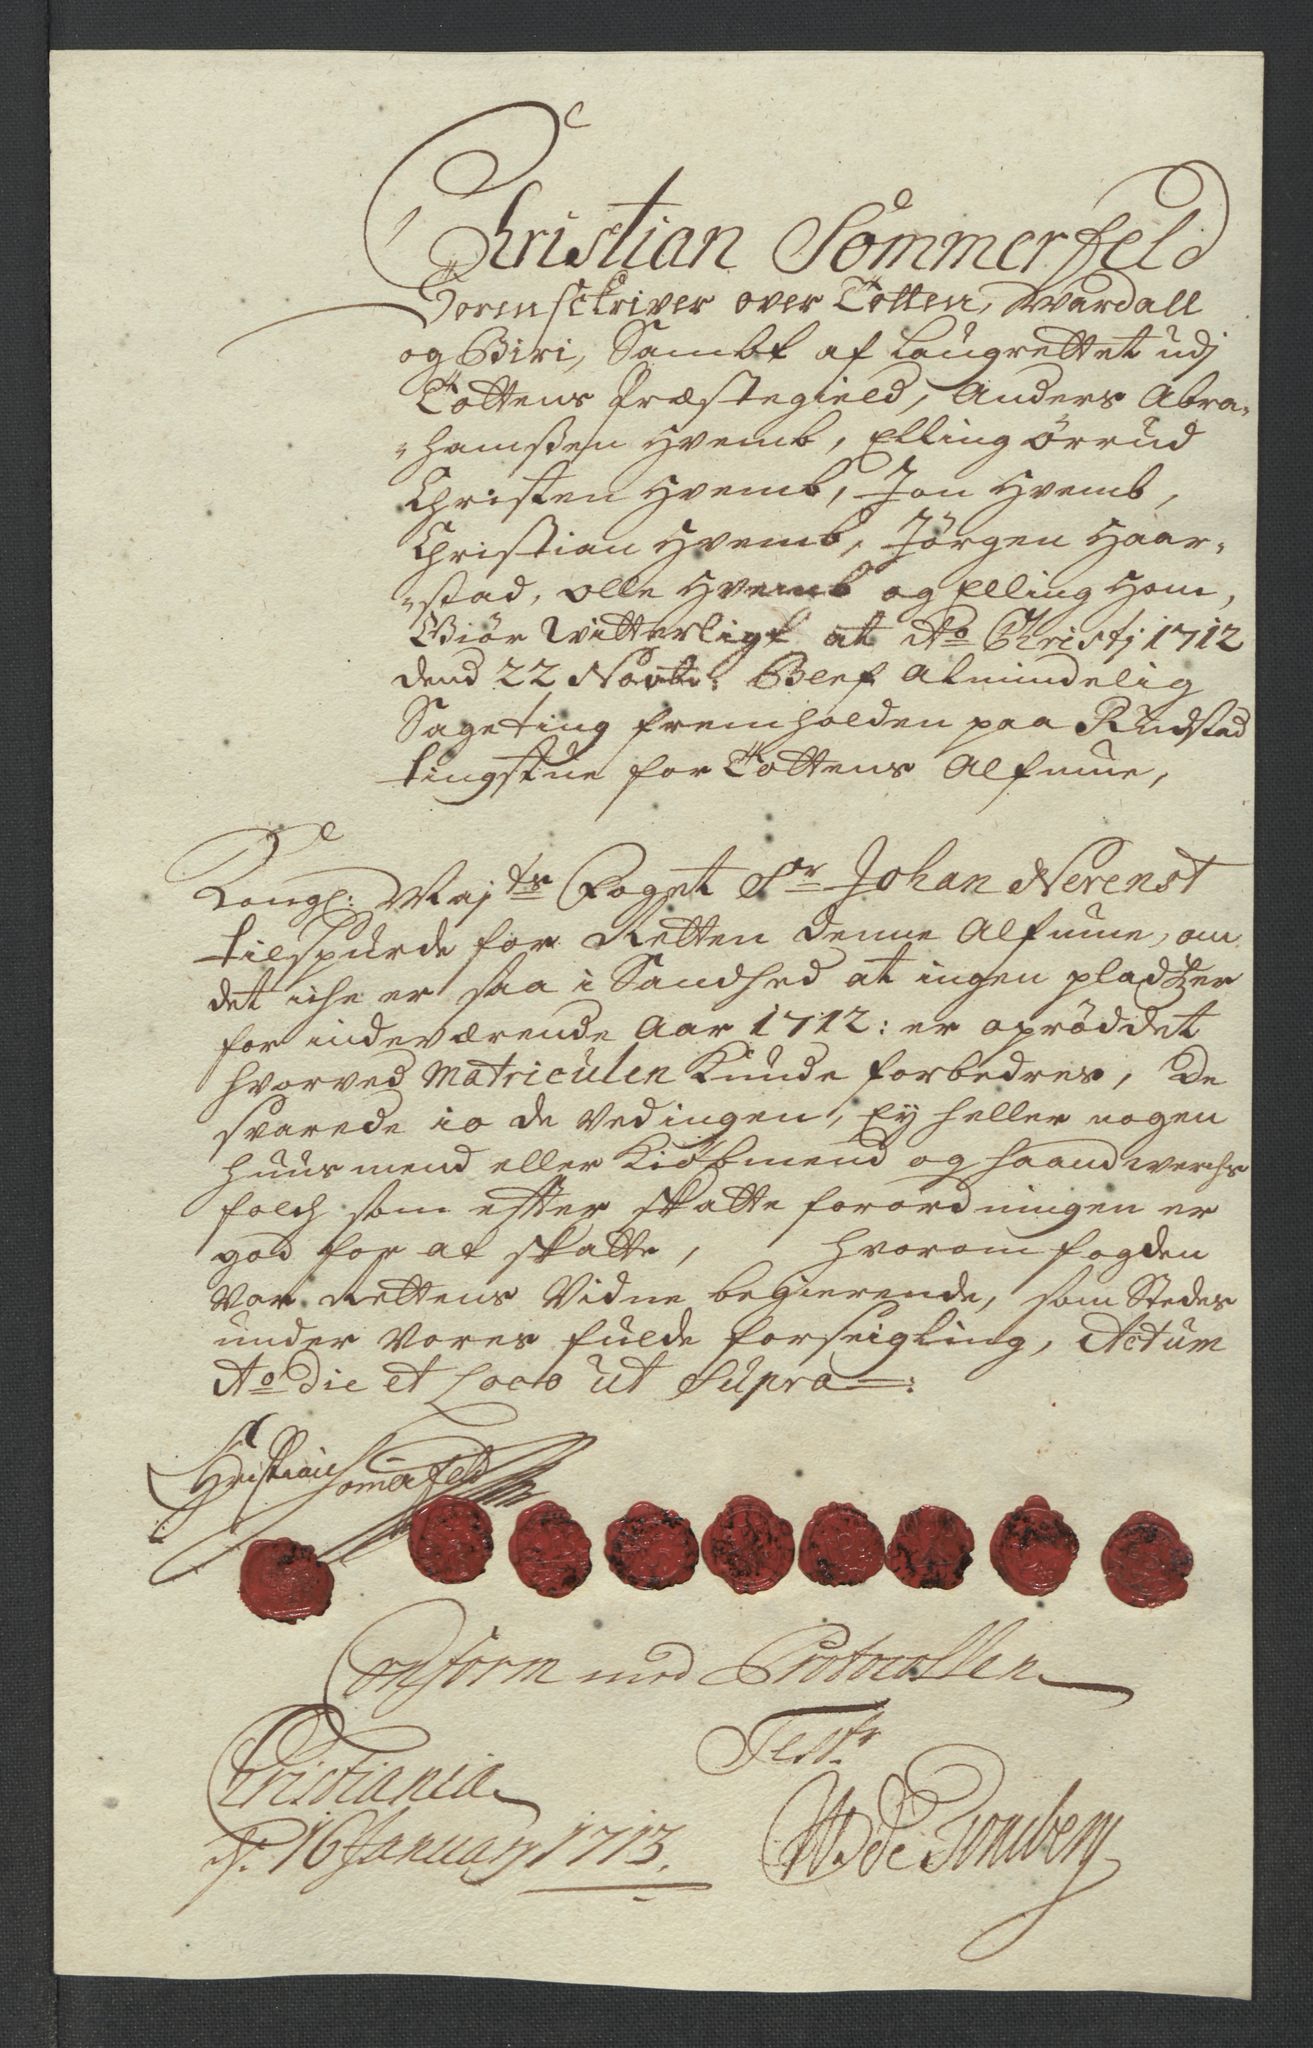 Christian Sommerfeld
Sorenschriver over Totten, Wardall
og Biri, Sambt af Laugrettet udj
Tottens Præstegield, Anders Abra-
-hamsßen Hvemb, Elling Örrud
Christen Hvemb, Jon Hvemb,
Christian Hvemb, Jörgen Haar-
-stad, Olle Hvemb og Elling Hom,
Giör Witterligt at Ao Christj 1712
dend 22 Novb: Blef Almindelig
Sageting fremholden paa Rudstad
tingstue for Tottens Almue,
Kongl: Mayts Foget Sr Johan Nerenst
tilspurde for Retten denne Almue, om
det iche er saa i Sandhed at ingen pladtzer
for indeværende Aar 1712: er opröddet
hvorved Matriculen Kunde forbedres, De
svarede io de Ved ingen, Ey heller nogen
huusmend eller Kiöbmend og haandwerchs
folch som efter skatte forordningen er
god for at skatte, hvorom fogden
var Rettens Vidne begierende, som Stedes
under vores fulde forseigling, Actum
Ao die et Loco ut Supra
Christian Somerfeld
Conform med Protocollen
Test.
Cristiania
d. 16 January 1713.